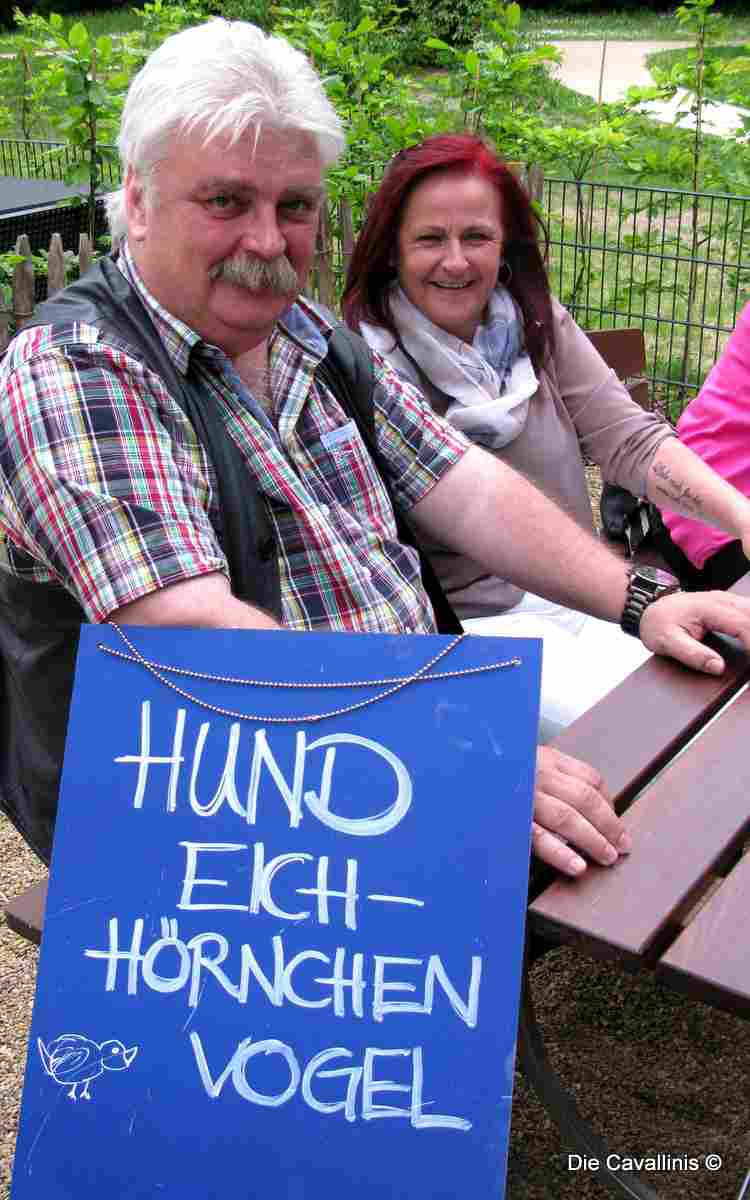 HUND
EICH-
HÖRNCHEN
VOGEL
Die Cavallinis ©